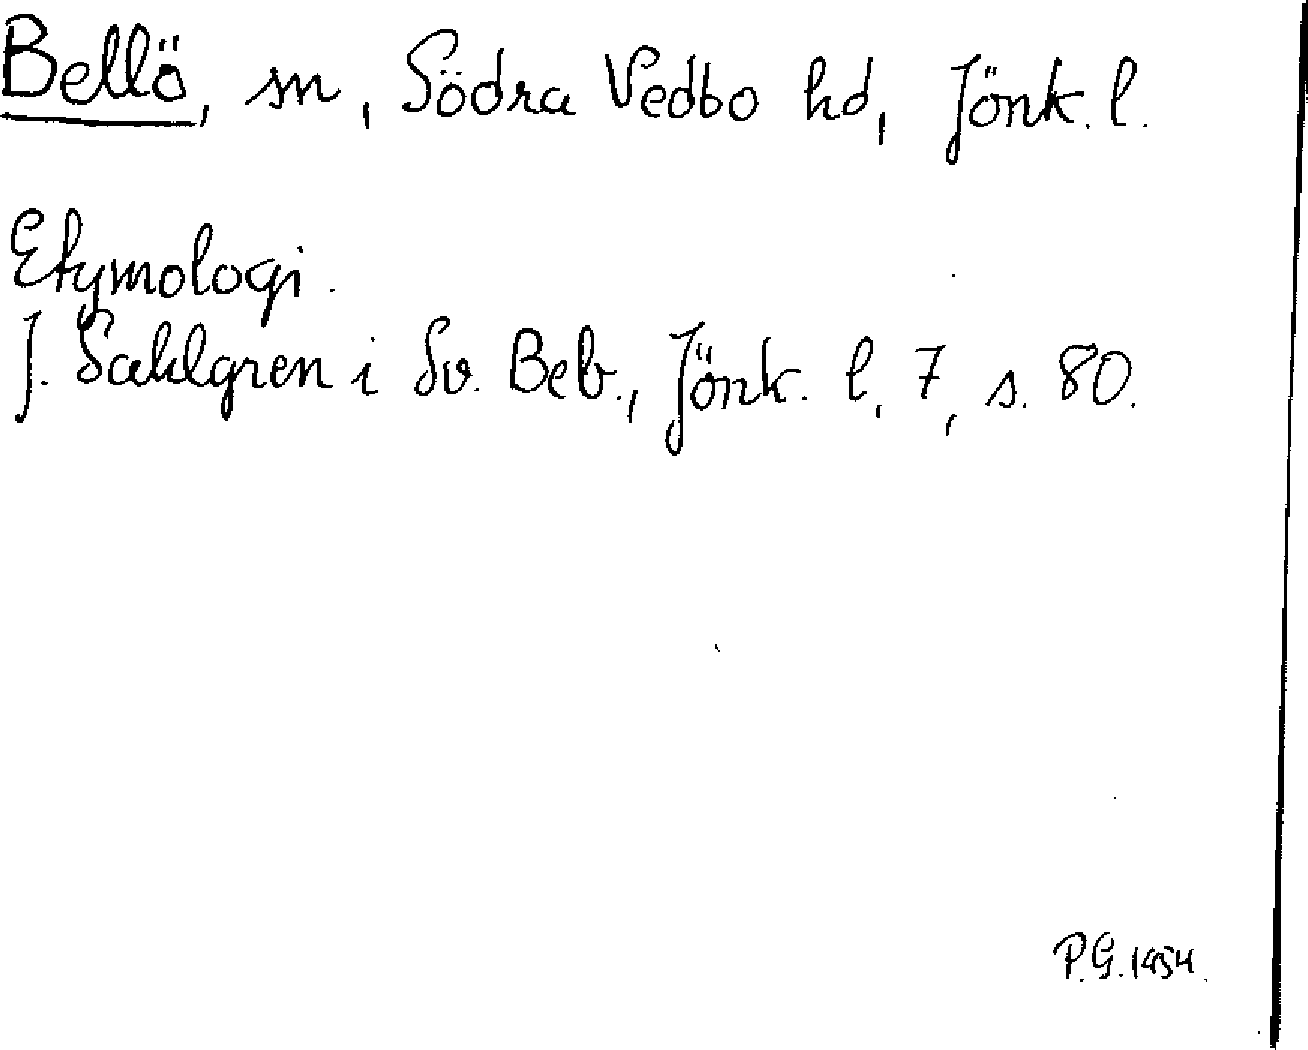 Bellö, sn, Södra Vedbo hd, Jönk. l.
Etymologi.
J. Sahlgren i Sv. Beb., Jönk. l, 7, s. 80.
P.G. 1954.